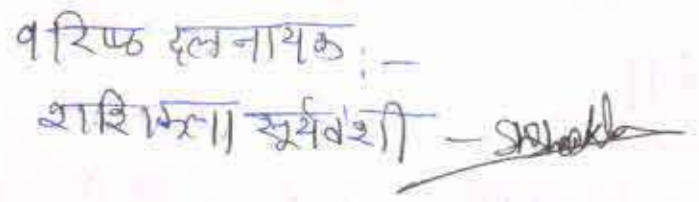 वरिष्ठ दलनायक :-
शशिकला सूर्यवंशी -